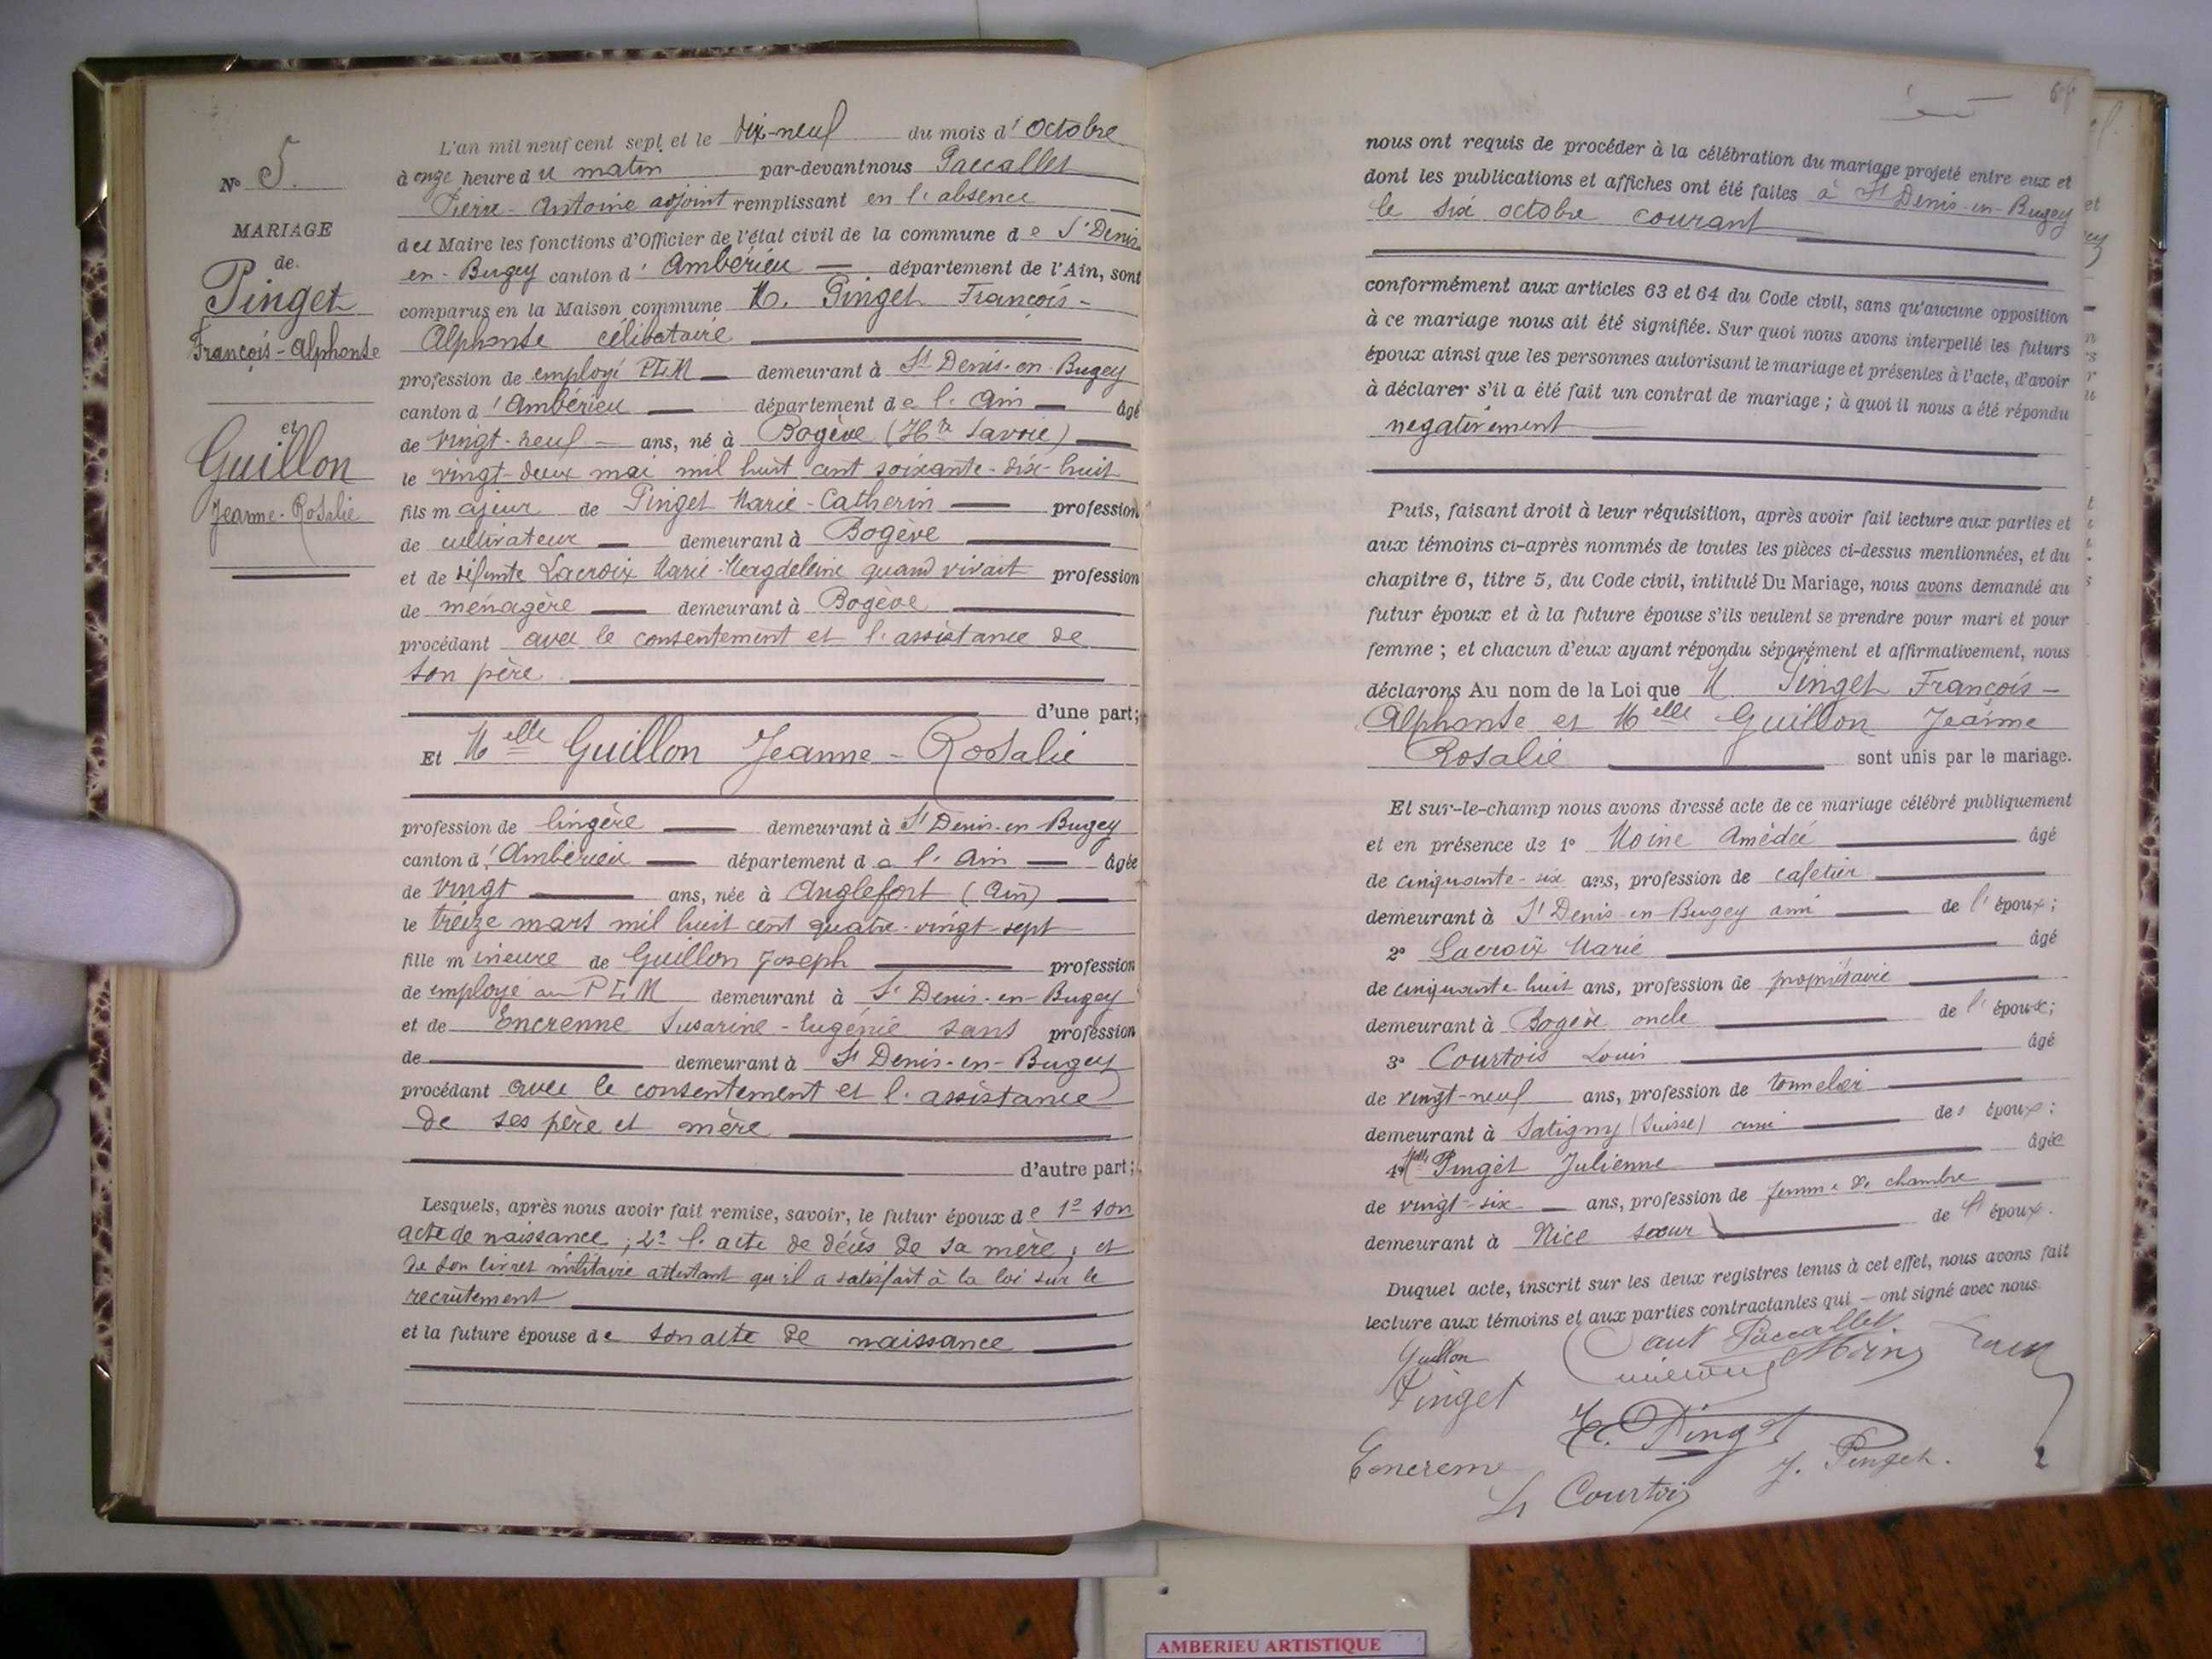 N° 5.
MARIAGE
de
Pinget
François-Alphonse
et
Guillon
Jeanne-Rosalie
L'an mil neuf cent sept et le dix-neuf du mois d'Octobre
à onze heure du matin par-devant nous Paccallet
Pierre-Antoine adjoint remplissant en l'absence
du Maire les fonctions d'Officier de l'état civil de la commune de St Denis
en-Bugey canton d'Ambérieu département de l'Ain, sont
comparus en la Maison commune M. Pinget François-
Alphonse célibataire
profession de employé PLM demeurant à St Denis-en-Bugey
canton d'Ambérieu département de l'Ain âgé
de vingt-neuf ans, né à Bogève (Hte Savoie)
le vingt-deux mai mil huit cent soixante-dix-huit
fils majeur de Pinget Marie-Catherin profession
de cultivateur demeurant à Bogève
et de défunte Lacroix Marie-Magdeleine quand vivait profession
de ménagère demeurant à Bogève
procédant avec le consentement et l'assistance de
son père
d'une part;
Et Melle Guillon Jeanne-Rosalie
profession de lingère demeurant à St Denis-en-Bugey
canton d'Ambérieu département de l'Ain âgée
de vingt ans, née à Anglefort (Ain)
le treize mars mil huit cent quatre-vingt-sept
fille mineure de Guillon Joseph profession
de employé au PLM demeurant à St Denis-en-Bugey
et de Encrenne Susarine-Eugénie sans profession
de demeurant à St Denis-en-Bugey
procédant avec le consentement et l'assistance
de ses père et mère
d'autre part;
Lesquels, après nous avoir fait remise, savoir, le futur époux de 1° son
acte de naissance; 2° l'acte de décès de sa mère, et
de son livret militaire attestant qu'il a satisfait à la loi sur le
recrutement
et la future épouse de son acte de naissance
nous ont requis de procéder à la célébration du mariage projeté entre eux et
dont les publications et affiches ont été faites à St Denis-en-Bugey
le six octobre courant
conformément aux articles 63 et 64 du Code civil, sans qu'aucune opposition
à ce mariage nous ait été signifiée. Sur quoi nous avons interpellé les futurs
époux ainsi que les personnes autorisant le mariage et présentes à l'acte, d'avoir
à déclarer s'il a été fait un contrat de mariage; à quoi il nous a été répondu
negativement
Puis, faisant droit à leur réquisition, après avoir fait lecture aux parties et
aux témoins ci-après nommés de toutes les pièces ci-dessus mentionnées, et du
chapitre 6, titre 5, du Code civil, intitulé Du Mariage, nous avons demandé au
futur époux et à la future épouse s'ils veulent se prendre pour mari et pour
femme; et chacun d'eux ayant répondu séparément et affirmativement, nous
déclarons Au nom de la Loi que M. Pinget François-
Alphonse et Melle Guillon Jeanne
Rosalie sont unis par le mariage.
Et sur-le-champ nous avons dressé acte de ce mariage célébré publiquement
et en présence de 1° Moine Amédée âgé
de cinquante-six ans, profession de cafetier
demeurant à St Denis-en-Bugey ami de l'époux;
2° Lacroix Marie âgé
de cinquante huit ans, profession de propriétaire
demeurant à Bogève oncle de l'époux;
3° Courtois Louis âgé
de vingt-neuf ans, profession de tonnelier
demeurant à Satigny (Suisse) ami des époux;
4° Melle Pinget Julienne âgée
de vingt-six ans, profession de femme de chambre
demeurant à Nice sœur de l'époux.
Duquel acte, inscrit sur les deux registres tenus à cet effet, nous avons fait
lecture aux témoins et aux parties contractantes qui - ont signé avec nous.
Guillon Paccallet
Pinget
Pinget
J. Pinget.
Courtois
AMBERIEU ARTISTIQUE